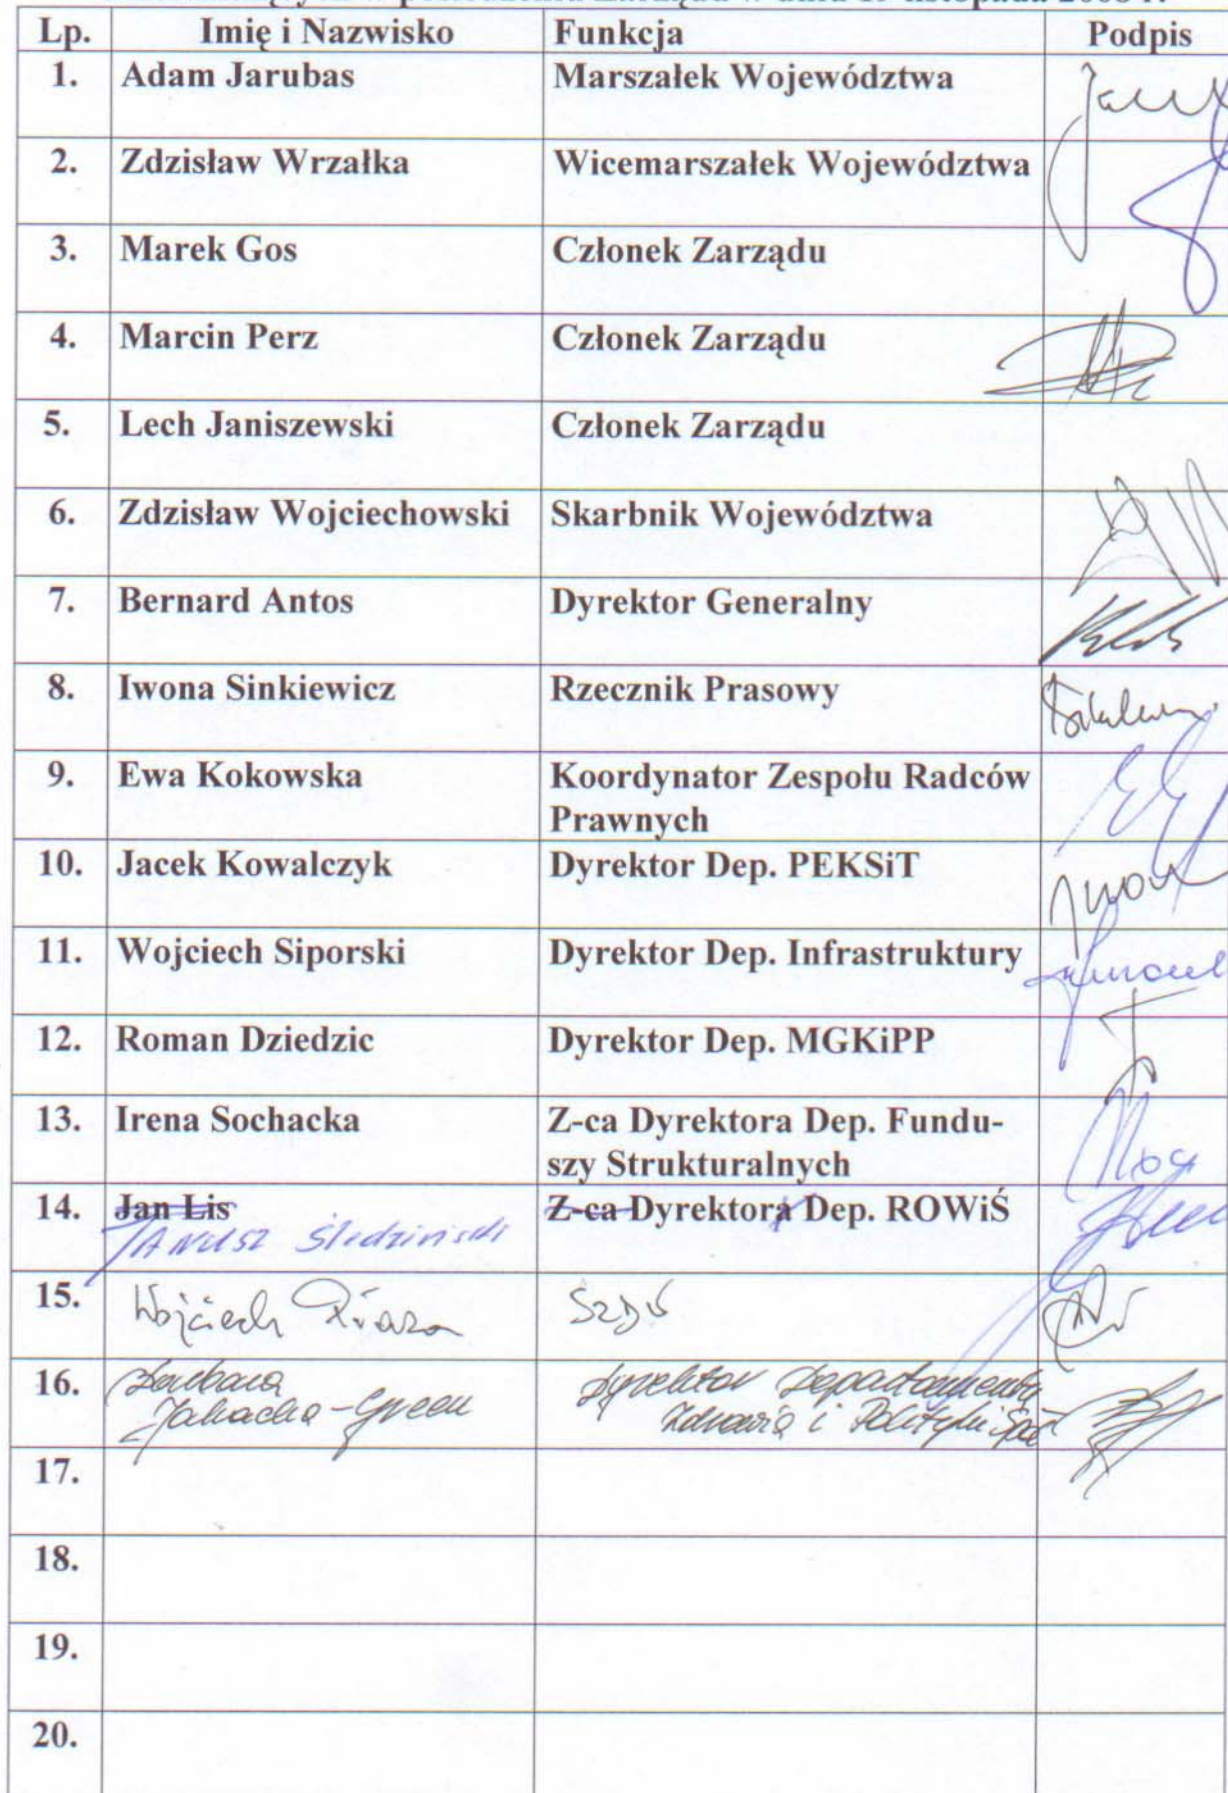 Lp. Imię i Nazwisko Funkcja Podpis
1. Adam Jarubas Marszałek Województwa
2. Zdzisław Wrzałka Wicemarszałek Województwa
3. Marek Gos Członek Zarządu
4. Marcin Perz Członek Zarządu
5. Lech Janiszewski Członek Zarządu
6. Zdzisław Wojciechowski Skarbnik Województwa
7. Bernard Antos Dyrektor Generalny
8. Iwona Sinkiewicz Rzecznik Prasowy
9. Ewa Kokowska Koordynator Zespołu Radców
Prawnych
10. Jacek Kowalczyk Dyrektor Dep. PEKSiT
11. Wojciech Siporski Dyrektor Dep. Infrastruktury
12. Roman Dziedzic Dyrektor Dep. MGKiPP
13. Irena Sochacka Z-ca Dyrektora Dep. Fundu-
szy Strukturalnych
14. Jan Lis Z-ca Dyrektora Dep. ROWiŚ
JANUSZ Śledziński
15. Wojciech Płaza
16. Barbara Dyrektor Departamentu
Jakacka-Green Zdrowia i Polityki Społ
17.
18.
19.
20.